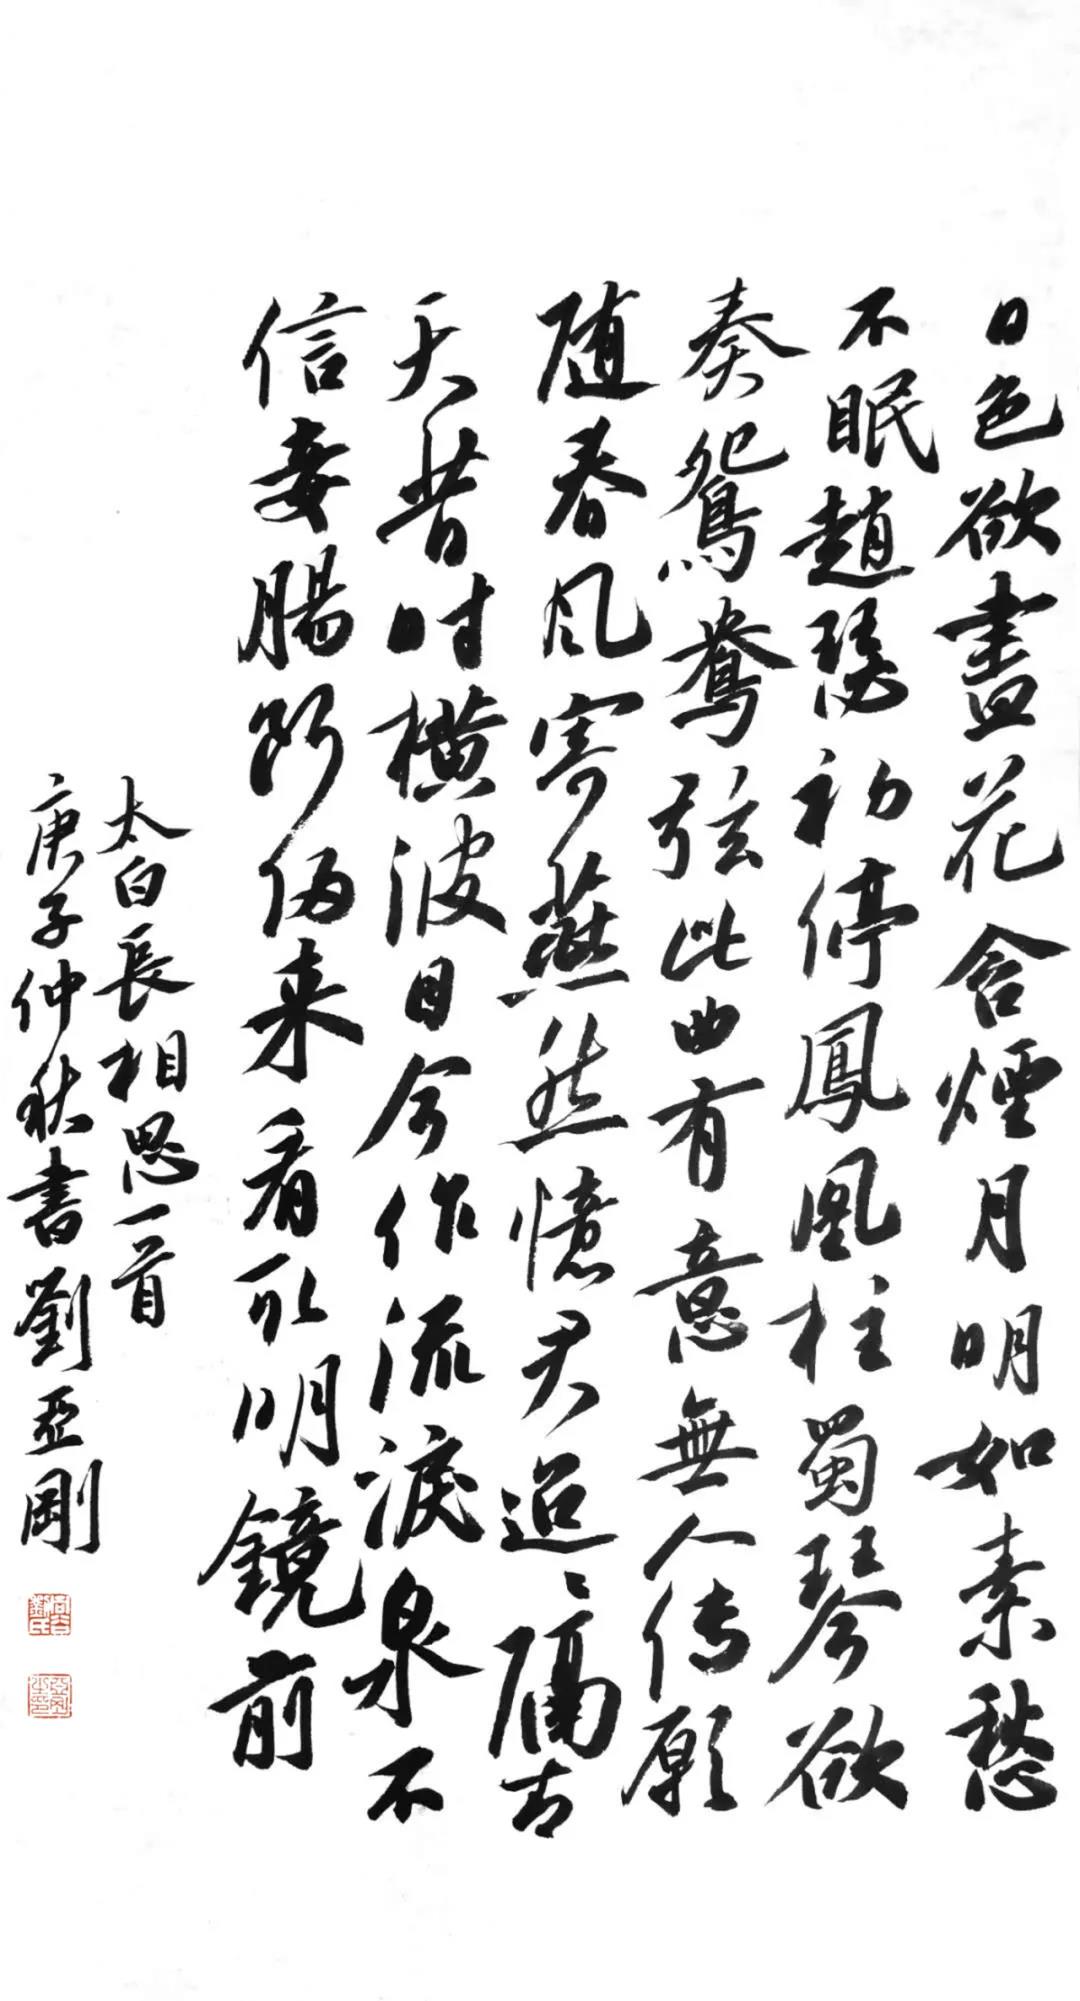 日色欲盡花含煙月明如素愁
不眠趙瑟初停鳳凰柱蜀琴欲
奏鴛鴦弦此曲有意無人传願
随春风寄燕然憶君迢〻隔青
天昔时横波目今作流淚泉不
信妾腸断歸来看取明鏡前
太白長相思一首
庚子仲秋書劉亞剛